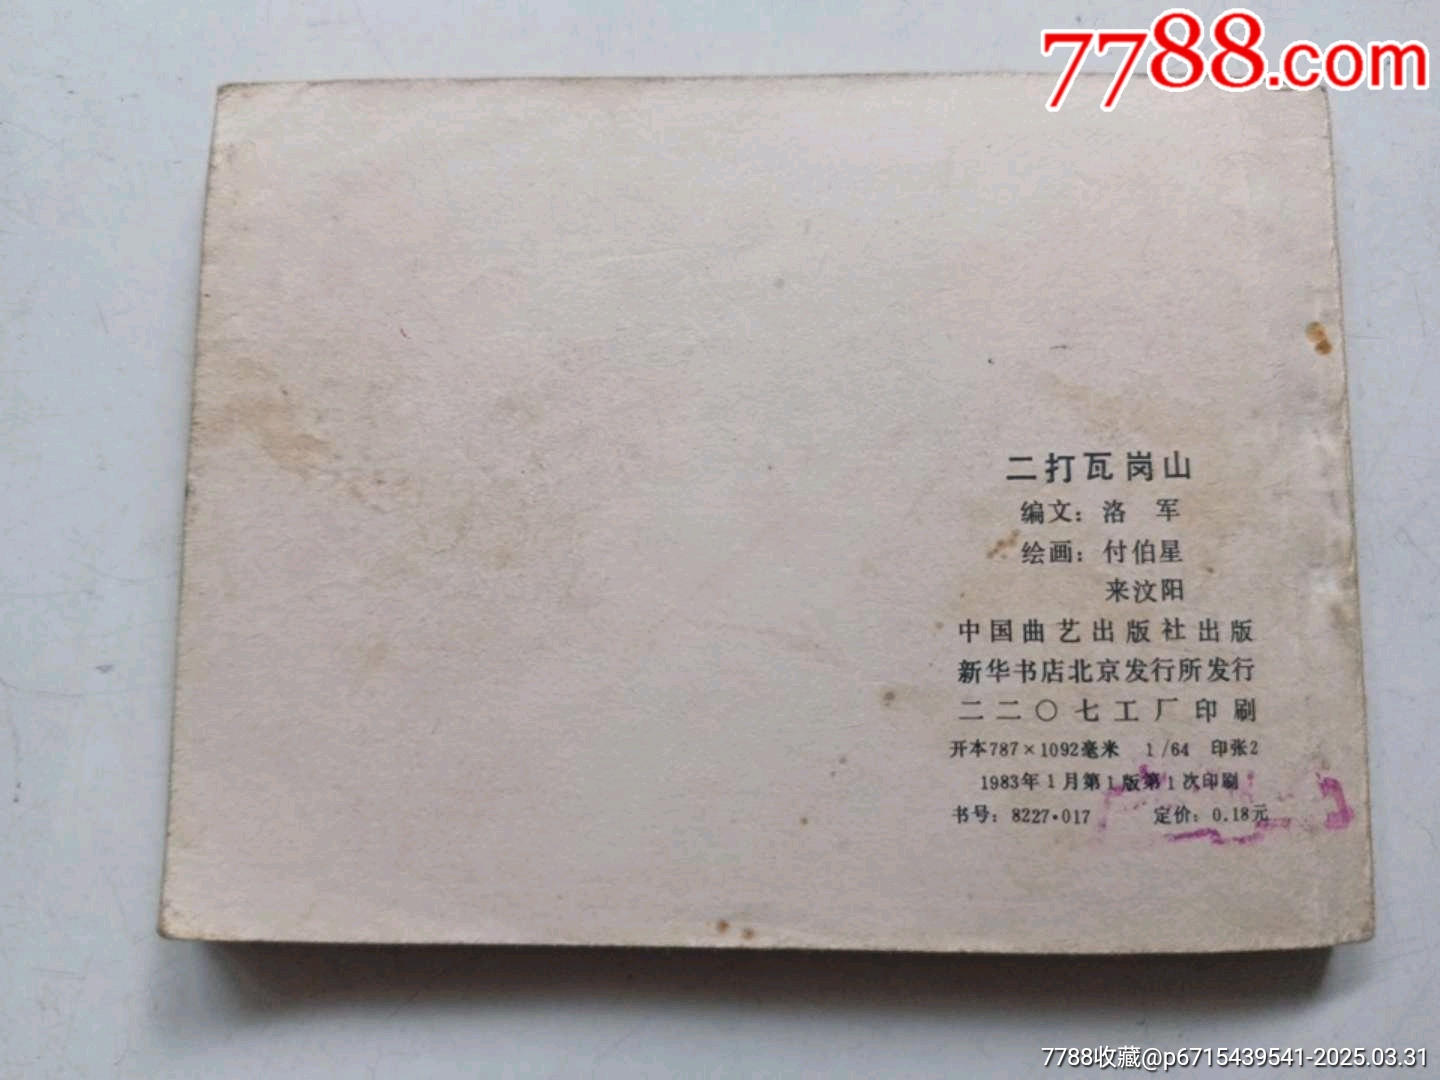 7788.com
二打瓦岗山
编文：洛 军
绘画：付伯星
来汶阳
中国曲艺出版社出版
新华书店北京发行所发行
二二〇七工厂印刷
开本787×1092毫米 1/64 印张2
1983年1月第1版第1次印刷
书号：8227·017 定价：0.18元
7788收藏@p6715439541-2025.03.31